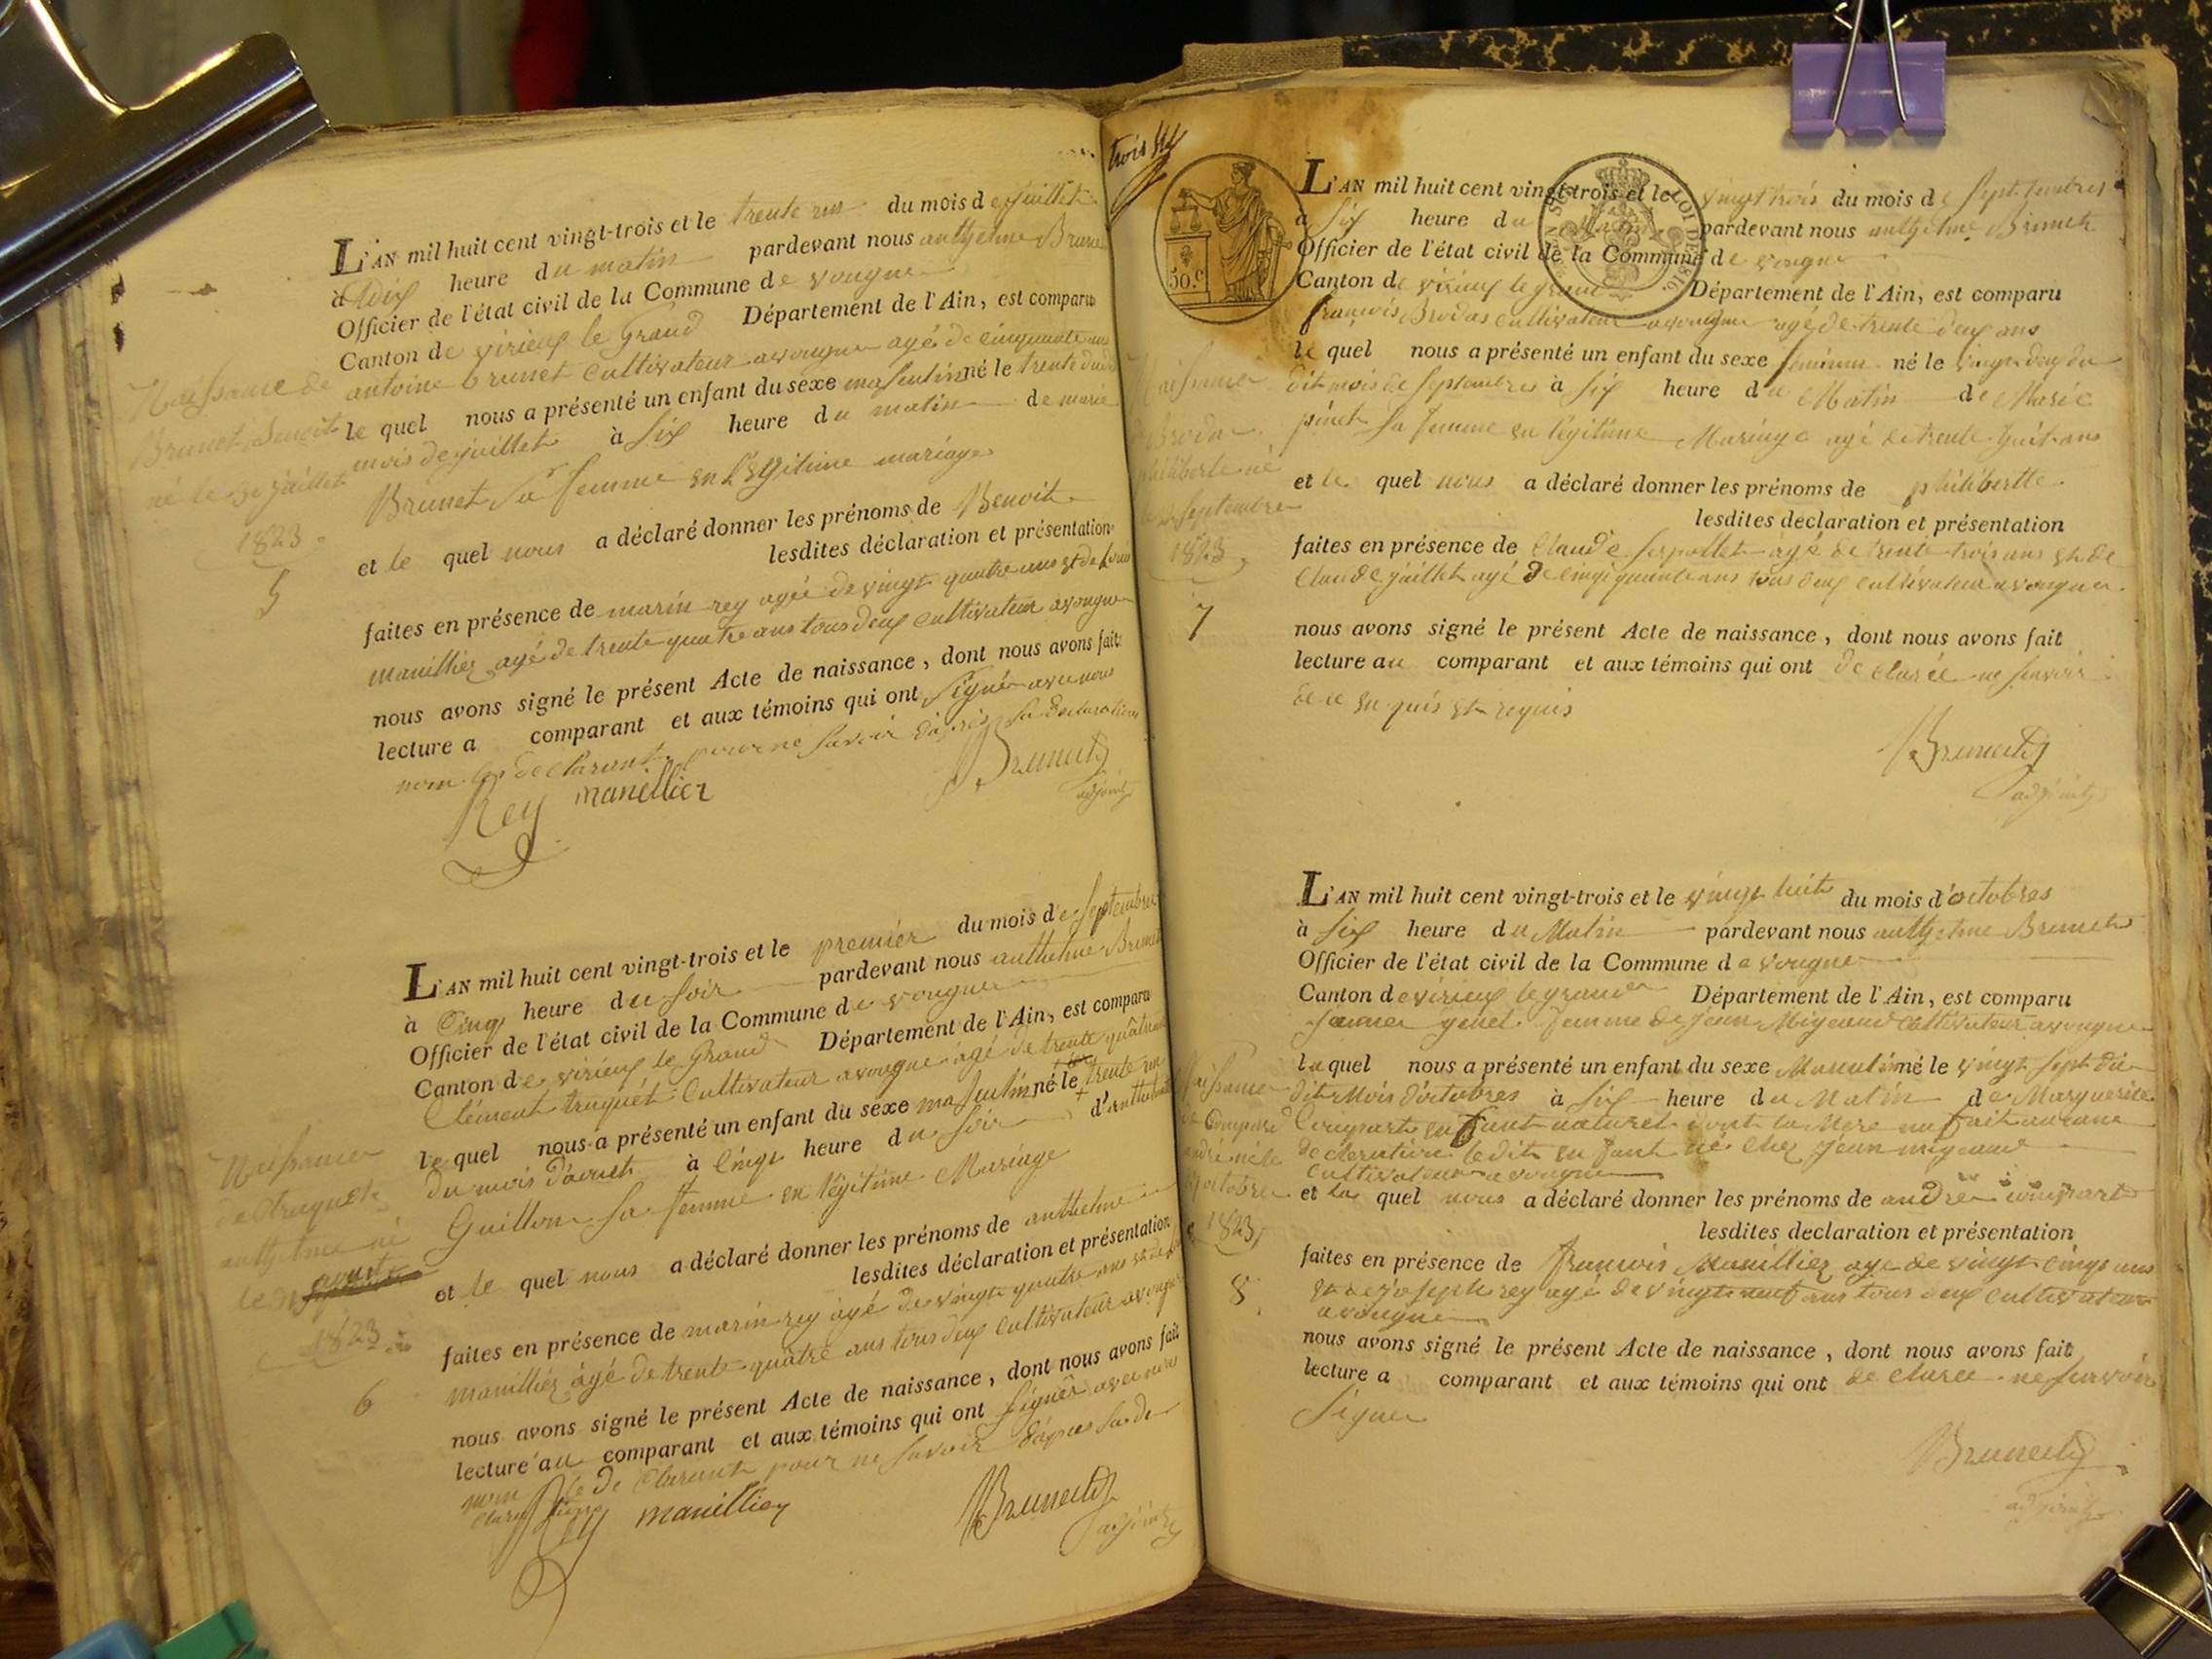 L'AN mil huit cent vingt-trois et le trente un du mois de juillet
à dix heure du matin pardevant nous anthelme Brunet
Officier de l'état civil de la Commune de vongne
Canton de virieux le Grand Département de l'Ain, est comparu
antoine brunet Cultivateur a vongne agé de cinquante ans
le quel nous a présenté un enfant du sexe masculin né le trente dudit
mois de juillet à six heure du matin de marie
Brunet Sa femme en légitime mariage
et le quel nous a déclaré donner les prénoms de Benoit
lesdites déclaration et présentation
faites en présence de marin rey agé de vingt quatre ans et de
manillier agé de trente quatre ans tous deux cultivateur a vongne
nous avons signé le présent Acte de naissance, dont nous avons fait
lecture a comparant et aux témoins qui ont signé avec nous
non le declarant pour ne savoir d'apres sa declaration
Rey manillier Brunet
adjoint
Naissance de
Brunet Benoit
né le 30 juillet
1823
5
L'AN mil huit cent vingt-trois et le premier du mois de septembre
à Cinq heure du soir pardevant nous anthelme Brunet
Officier de l'état civil de la Commune de vongne
Canton de virieux le Grand Département de l'Ain, est comparu
Clément truquet Cultivateur a vongne agé de trente quatre
le quel nous a présenté un enfant du sexe masculin né le trente un
du mois d'aout à Cinq heure du soir d'anthelme
Guillon sa femme en légitime Mariage
et le quel nous a déclaré donner les prénoms de anthelme
lesdites déclaration et présentation
faites en présence de marin rey agé de vingt quatre ans et de
manillier agé de trente quatre ans tous deux Cultivateur a vongne
nous avons signé le présent Acte de naissance, dont nous avons fait
lecture au comparant et aux témoins qui ont signer avec nous
non le de Clarant pour ne savoir d'apres sa de
Rey manillier Brunet
adjoint
Naissance
de truquet
anthelme né
le 31 aout
1823
6
trois
50.c
LOI DE 1816
L'AN mil huit cent vingt-trois et le vingt trois du mois de Septembres
à Six heure du Matin pardevant nous anthelme Brunet
Officier de l'état civil de la Commune de vongne
Canton de virieux le grand Département de l'Ain, est comparu
françois Brodas cultivateur a vongne agé de trente deux ans
le quel nous a présenté un enfant du sexe feminin né le vingt deux du
dit mois de Septembres à Six heure du Matin de Marie
pinet sa femme en légitime Mariage agé de trente huit ans
et le quel nous a déclaré donner les prénoms de philibertte
lesdites declaration et présentation
faites en présence de Claude agé de trente trois ans et de
Claude juillet agé de cinquante ans tous deux cultivateur a vongne
nous avons signé le présent Acte de naissance, dont nous avons fait
lecture au comparant et aux témoins qui ont de clarée ne savoir
de ce en quis et requis
Brunet
adjoint
Naissance
de Brodas
philiberte né
le 22 Septembre
1823
7
L'AN mil huit cent vingt-trois et le vingt huit du mois d'octobres
à Six heure du Matin pardevant nous anthelme Brunet
Officier de l'état civil de la Commune de vongne
Canton de virieux le grand Département de l'Ain, est comparu
femme de jean Migeaud Cultivateur a vongne
la quel nous a présenté un enfant du sexe Masculin né le vingt sept du
dit Mois d'octobres à Six heure du Matin de Marguerite
Compart enfant naturel dont la Mere na fait aucune
déclaration le dit enfant né Chez jean migeaud
Cultivateur a vongne
et la quel nous a déclaré donner les prénoms de andré compart
lesdites declaration et présentation
faites en présence de françois Manillier agé de vingt cinq ans
et de joseph rey agé de vingt neuf ans tous deux cultivateur
a vongne
nous avons signé le présent Acte de naissance, dont nous avons fait
lecture a comparant et aux témoins qui ont de claree ne savoir
Signer
Brunet
adjoint
Naissance
de Compart
andré né le
27 octobre
1823
8